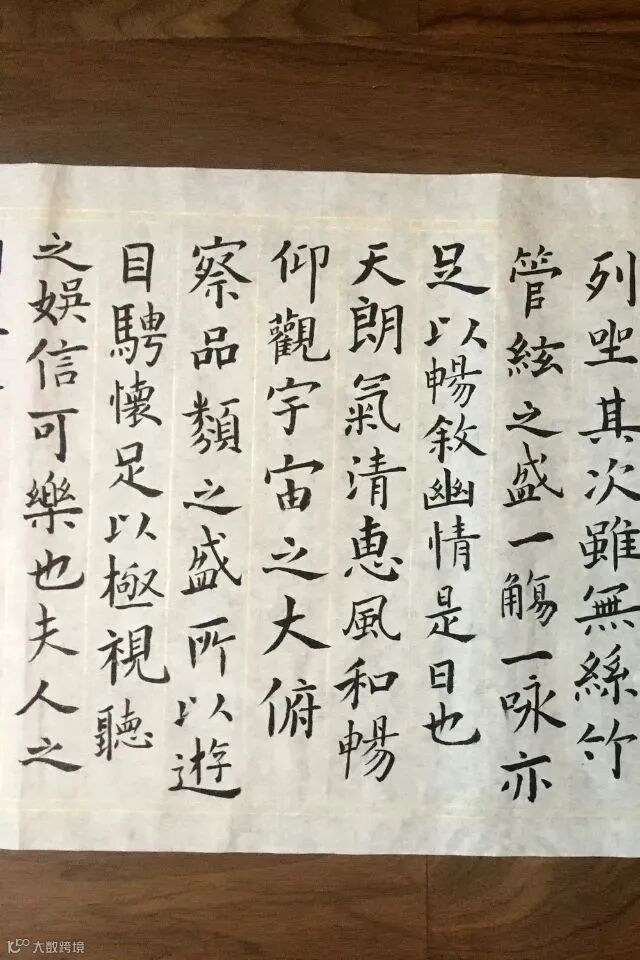 列坐其次雖無絲竹
管絃之盛一觴一咏亦
足以暢敘幽情是日也
天朗氣清惠風和暢
仰觀宇宙之大俯
察品類之盛所以遊
目騁懷足以極視聽
之娛信可樂也夫人之
大数跨境